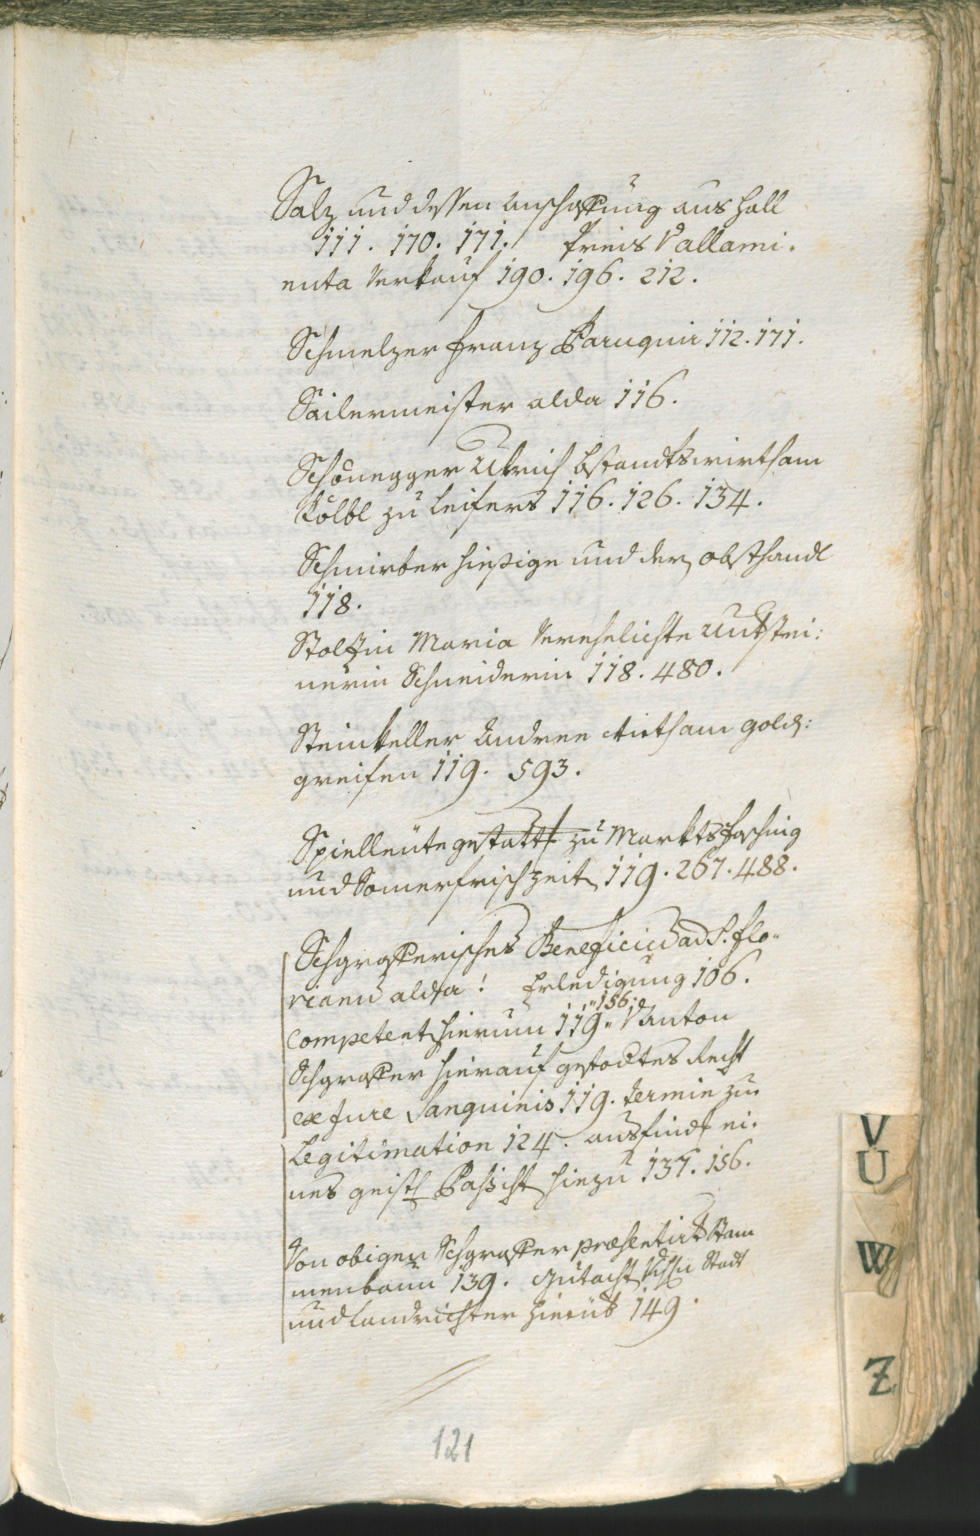 Salz und dessen Anschaffung aus Hall
111. 170. 171. Preis Vallimi-
enta Verkauf 190. 196. 212.
Schmelzer Franz Paruquir 112. 171.
Sailermeister alda 116.
Schönegger Ulrich bstandtswirth am
Kölbl zu Leifers 116. 126. 134.
Schmirber hiesige und der obsthandl
118.
Stolzin Maria Verehelichte
nerin Schneiderin 118. 480.
Steinkeller Andree Wirth am gold:
greifen 119. 593.
Spielleute gestatt zu Markts Fasching
und Somerfrischzeit 119. 267. 488.
Schgrafferisches Beneficium ad S. Flo-
rianum alda! Erledigung 106.
competenten hierum 119 " 156: Anton
Schgraffer hierauf gesuchtes Recht
ex Jure Sanguinis 119. termin zur
Legitimation 124. ausfindung ei-
nes geistl. hiezu 137. 156.
Von obigen Schgraffer præsentirt Stam
menbaum 139. Gutacht Stadt
und Landrichter hierüb 149.
121
V
U
W
Z